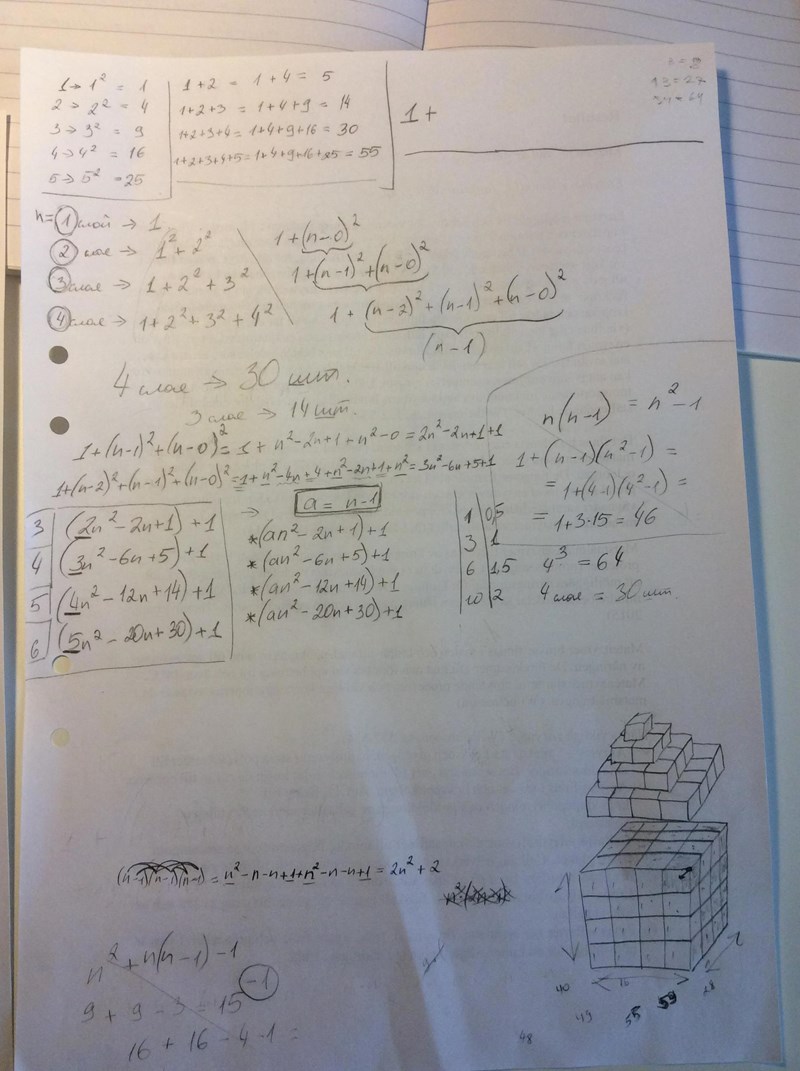 1 → 1² = 1
2 → 2² = 4
3 → 3² = 9
4 → 4² = 16
5 → 5² = 25
1+2 = 1+4 = 5
1+2+3 = 1+4+9 = 14
1+2+3+4 = 1+4+9+16 = 30
1+2+3+4+5 = 1+4+9+16+25 = 55
1+
n = 1 слой → 1
2 слое → 1² + 2²
3 слое → 1 + 2² + 3²
4 слое → 1 + 2² + 3² + 4²
1+(n-0)²
1+(n-1)²+(n-0)²
1 + (n-2)² + (n-1)² + (n-0)²
(n-1)
4 слое → 30 шт.
3 слое → 14 шт.
1+(n-1)²+(n-0)² = 1 + n²-2n+1+n²-0 = 2n²-2n+1+1
1+(n-2)²+(n-1)²+(n-0)² = 1+n²-4n+4+n²-2n+1+n² = 3n²-6n+5+1
n(n-1) = n²-1
1+(n-1)(n²-1) =
= 1+(4-1)(4²-1) =
= 1+3·15 = 46
4³ = 64
4 слое = 30 шт.
3 (2n²-2n+1)+1
4 (3n²-6n+5)+1
5 (4n²-12n+14)+1
6 (5n²-20n+30)+1
→ a = n-1
*(an²-2n+1)+1
*(an²-6n+5)+1
*(an²-12n+14)+1
*(an²-20n+30)+1
1 0,5
3 1
6 1,5
10 2
(n-1)(n-1)(n-1) = n²-n-n+1+n²-n-n+1 = 2n²+2
n² + n(n-1) -1
9 + 9 - 3 = 15 -1
16 + 16 - 4 - 1 =
40 16 28
49 55 59
48